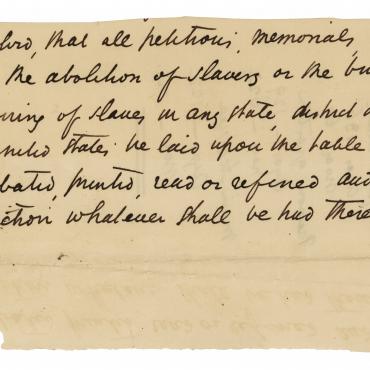 lvd, that all petitions, memorials,
the abolition of slavery or the bu
ring of slaves in any state, district o
nited States be laid upon the table
bated, printed, read or referred and
ction whatever shall be had there